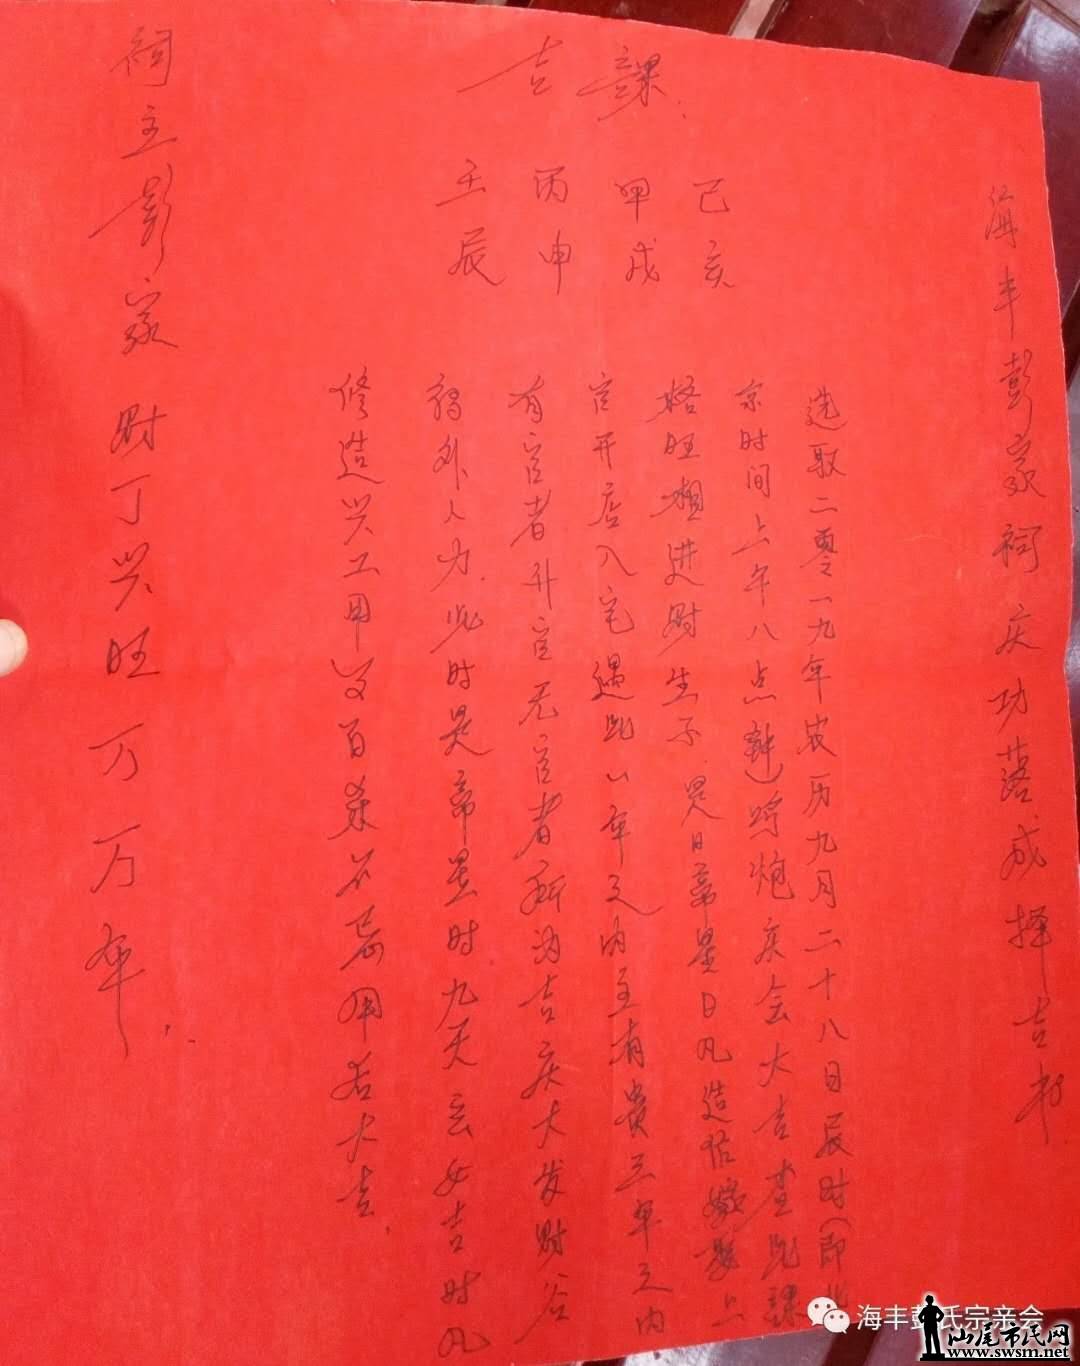 海丰彭家祠庆功落成择吉书
吉課
己亥
甲戌
丙申
壬辰
选取二零一九年农历九月二十八日辰时（即北
京时间上午八点钟）鸣炮庆会大吉查此課
格旺相进财生子是日帝星日凡造作嫁娶上
官开店入宅遇此山年之内主有贵三年之内
有官者升官无官者所为吉庆大发财谷
福外人力此时是帝星时九天玄女吉时凡
修造兴工用之百杀不忌用者大吉
祠主彭家财丁兴旺万万年
海丰彭氏宗亲会
汕尾市民网
www.swsm.net